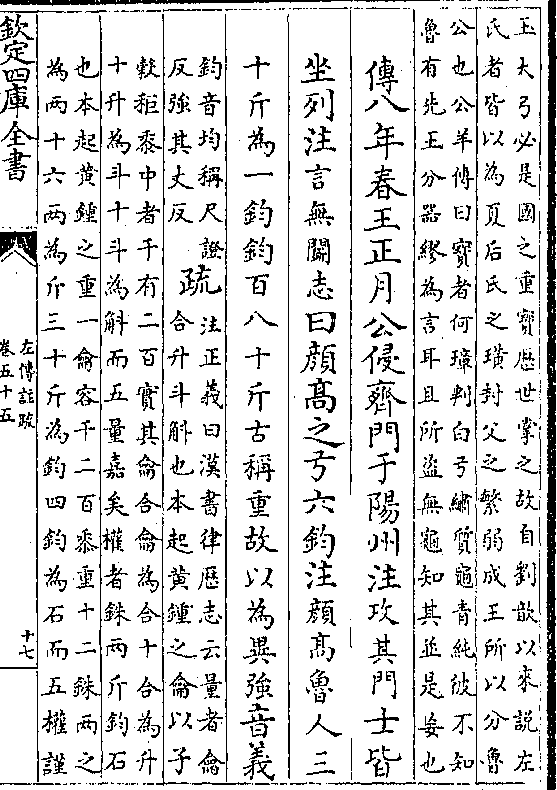 玉大弓必是國之重寶歷世掌之故自劉歆以來説左
氏者皆以為夏后氏之璜封父之繁弱成王所以分魯
公也公羊傳曰寳者何璋判白弓繡質龜青純彼不知
魯有先王分器繆為言耳且所盗無龜知其並是妄也
傳八年春王正月公侵齊門于陽州注攻其門士皆
坐列注言無鬭志曰顔髙之弓六鈞注顔髙魯人三
十斤為一鈞鈞百八十斤古稱重故以為異強音義
鈞音均稱尺證
反強其丈反
疏
法正義曰漢書律歴志云量者龠
合升斗斛也本起黄鍾之龠以子
糓秬黍中者千有二百實其龠合龠為合十合為升
十升為斗十斗為斛而五量嘉矣權者銖兩斤鈞石
也本起黄鍾之重一龠容千二百黍重十二銖兩之
為兩十六兩為斤三十斤為鈞四鈞為石而五權謹
欽定四庫全書
左傳註疏
卷五十五
十七